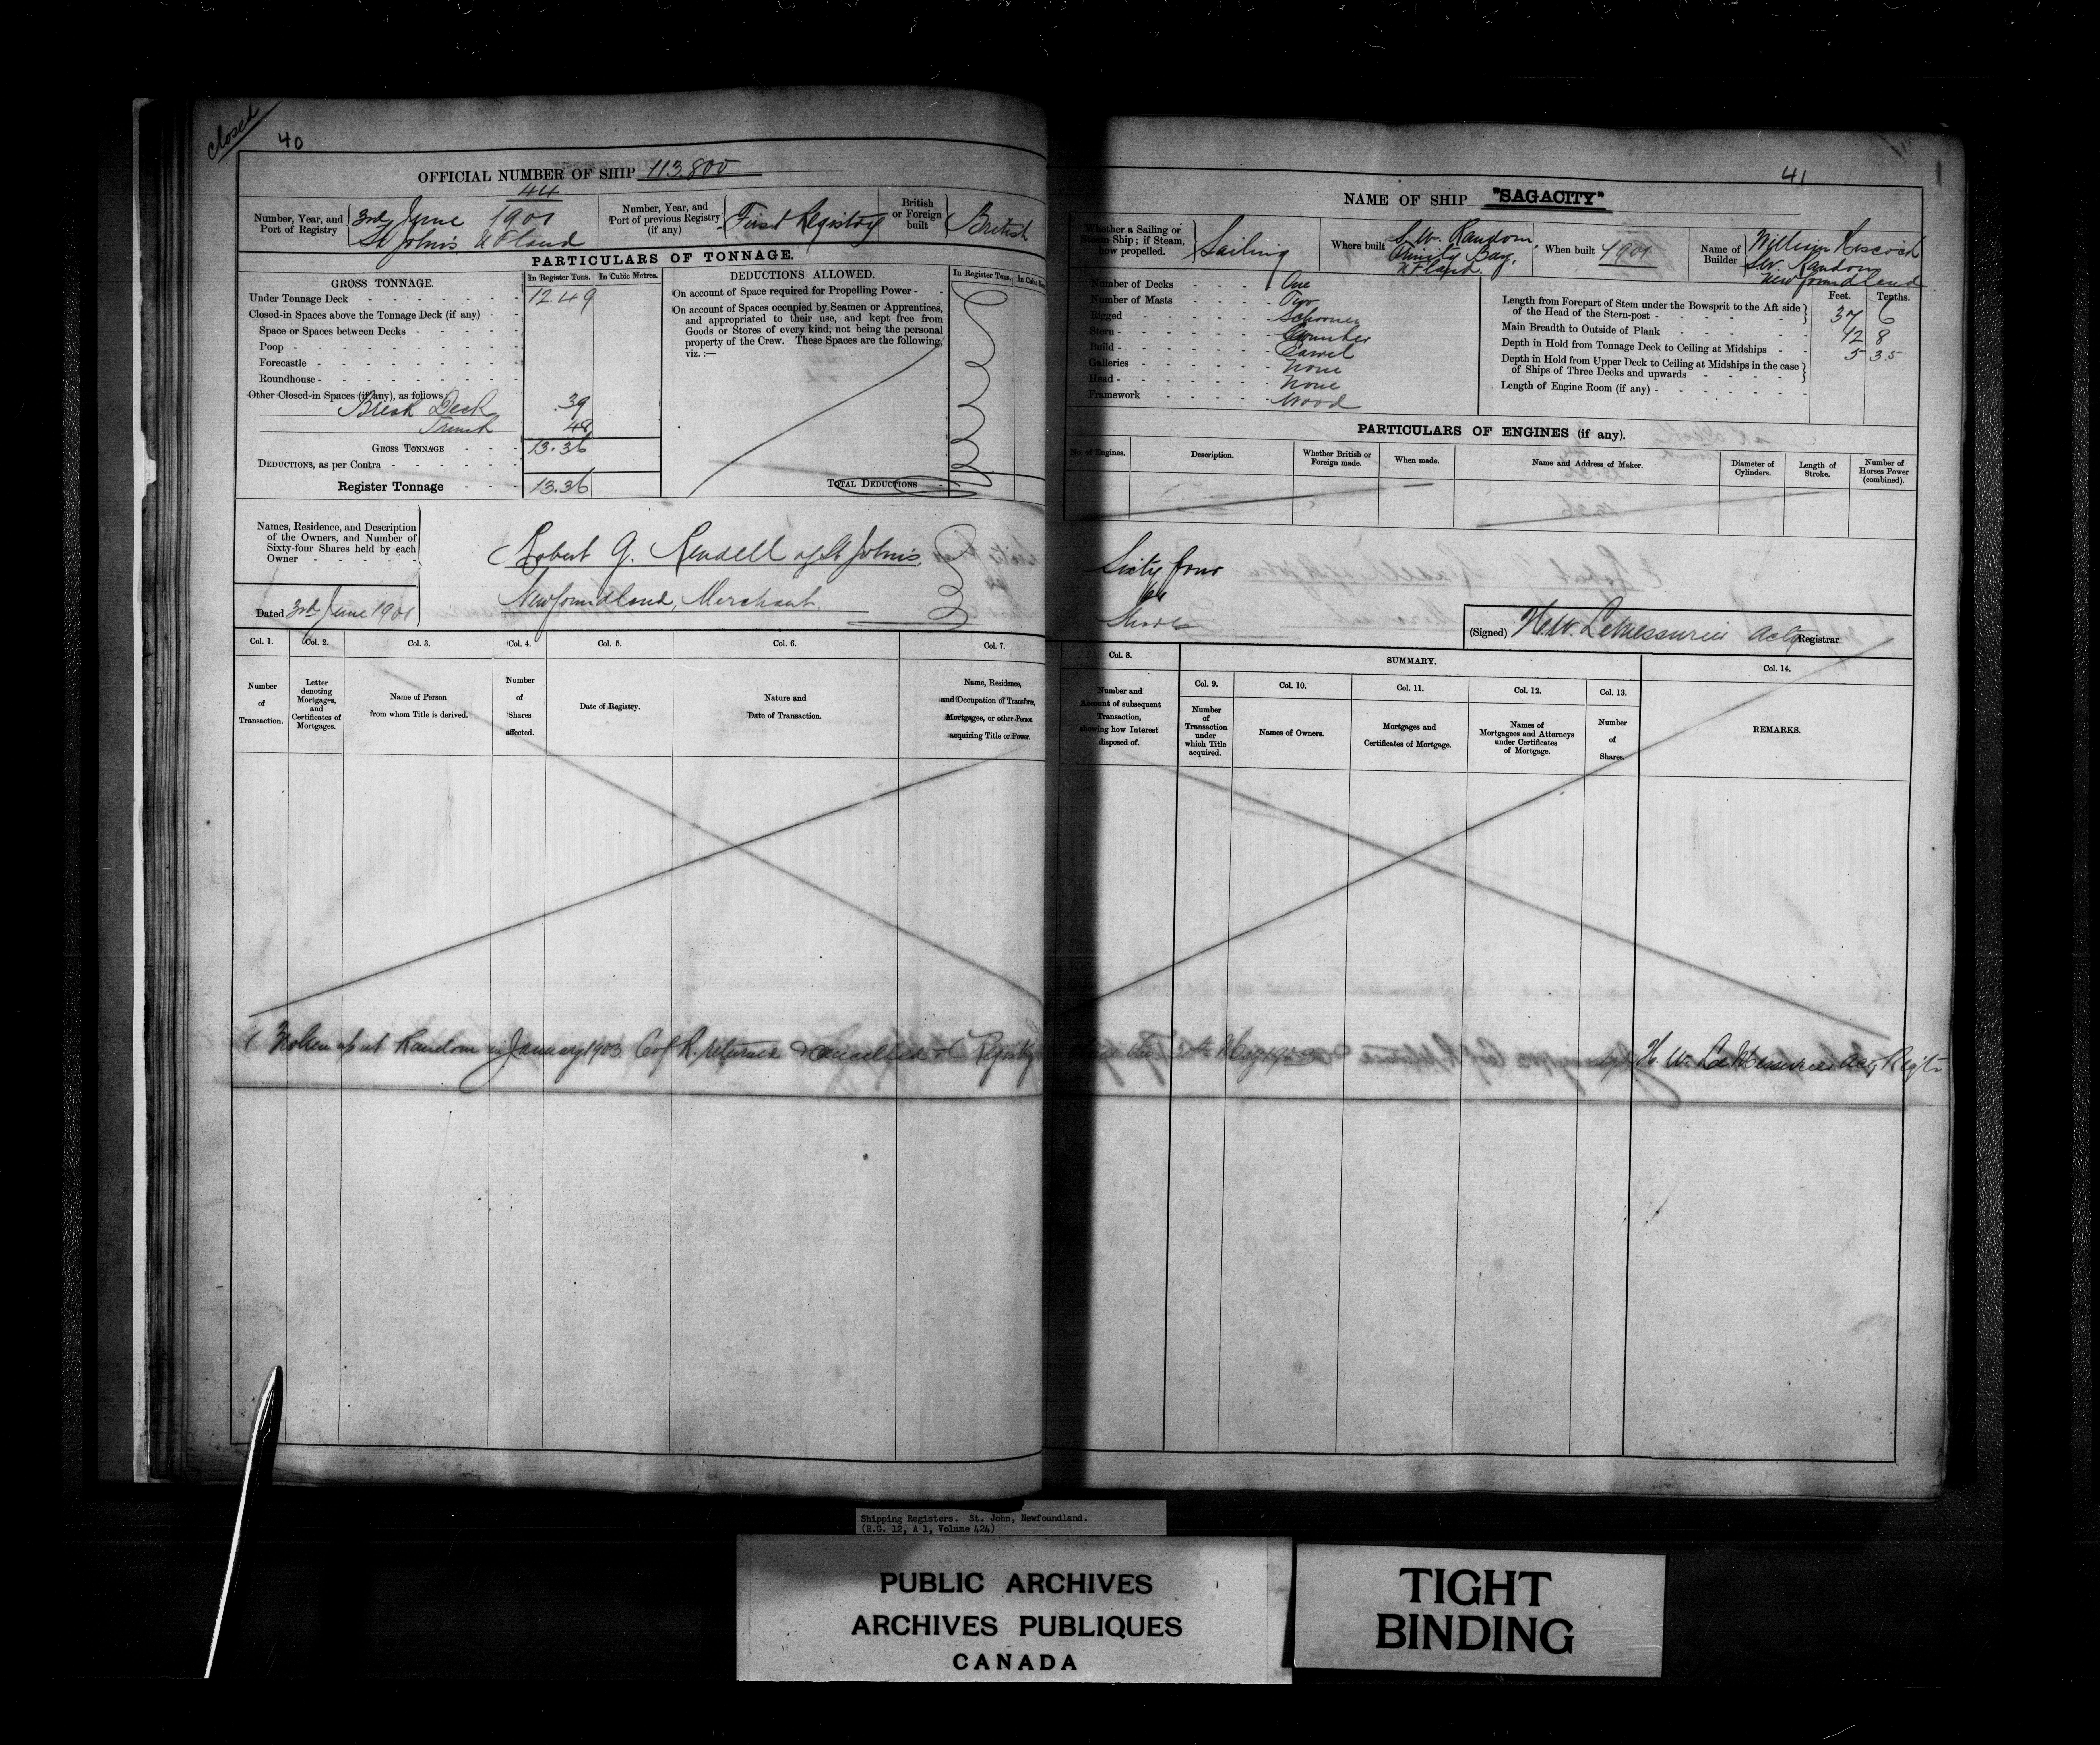 closed
40
OFFICIAL NUMBER OF SHIP 113.800
44
Number, Year, and Port of Registry
3rd June 1901
St John's N F land
Number, Year, and Port of previous Registry (if any)
First Registry
British or Foreign built
British
PARTICULARS OF TONNAGE.
GROSS TONNAGE.
In Register Tons. In Cubic Metres.
Under Tonnage Deck 12.49
Closed-in Spaces above the Tonnage Deck (if any)
Space or Spaces between Decks
Poop
Forecastle
Roundhouse
Other Closed-in Spaces (if any), as follows
Break Deck .39
Trunk .48
GROSS TONNAGE 13.36
DEDUCTIONS, as per Contra
Register Tonnage 13.36
DEDUCTIONS ALLOWED.
In Register Tons.
On account of Space required for Propelling Power
On account of Spaces occupied by Seamen or Apprentices,
and appropriated to their use, and kept free from
Goods or Stores of every kind, not being the personal
property of the Crew. These Spaces are the following,
viz. :—
TOTAL DEDUCTIONS
Names, Residence, and Description
of the Owners, and Number of
Sixty-four Shares held by each
Owner
Robert G. Rendell of St John's
Newfoundland, Merchant.
Dated 3rd June 1901
Col. 1. Col. 2. Col. 3. Col. 4. Col. 5. Col. 6. Col. 7.
Number of Transaction.
Letter denoting Mortgages, and Certificates of Mortgages.
Name of Person from whom Title is derived.
Number of Shares affected.
Date of Registry.
Nature and Date of Transaction.
Name, Residence, and Occupation of Transferee, Mortgagee, or other Person acquiring Title or Power.
Broken up at Random in January 1903. C of R. returned & cancelled & Registry
41
NAME OF SHIP "SAGACITY"
Whether a Sailing or Steam Ship; if Steam, how propelled.
Sailing
Where built
S.W. Random,
Trinity Bay,
N F land.
When built 1901
Name of Builder
William
S.W. Random
Newfoundland
Number of Decks One
Number of Masts Two
Rigged Schooner
Stern Counter
Build Carvel
Galleries None
Head None
Framework Wood
Feet. Tenths.
Length from Forepart of Stem under the Bowsprit to the Aft side
of the Head of the Stern-post 37 6
Main Breadth to Outside of Plank 12 8
Depth in Hold from Tonnage Deck to Ceiling at Midships 5 3.5
Depth in Hold from Upper Deck to Ceiling at Midships in the case
of Ships of Three Decks and upwards
Length of Engine Room (if any)
PARTICULARS OF ENGINES (if any).
No. of Engines. Description. Whether British or Foreign made. When made. Name and Address of Maker. Diameter of Cylinders. Length of Stroke. Number of Horses Power (combined).
Sixty four
64
Shares
(Signed) H.W. LeMessurier Actg Registrar
Col. 8. SUMMARY. Col. 14.
Col. 9. Col. 10. Col. 11. Col. 12. Col. 13.
Number and Amount of subsequent Transaction, showing how Interest disposed of.
Number of Transaction under which Title acquired.
Names of Owners.
Mortgages and Certificates of Mortgage.
Names of Mortgagees and Attorneys under Certificates of Mortgage.
Number of Shares.
REMARKS.
H. W. LeMessurier Actg Regtr
Shipping Registers. St. John, Newfoundland.
(R.G. 12, A 1, Volume 424)
PUBLIC ARCHIVES
ARCHIVES PUBLIQUES
CANADA
TIGHT
BINDING